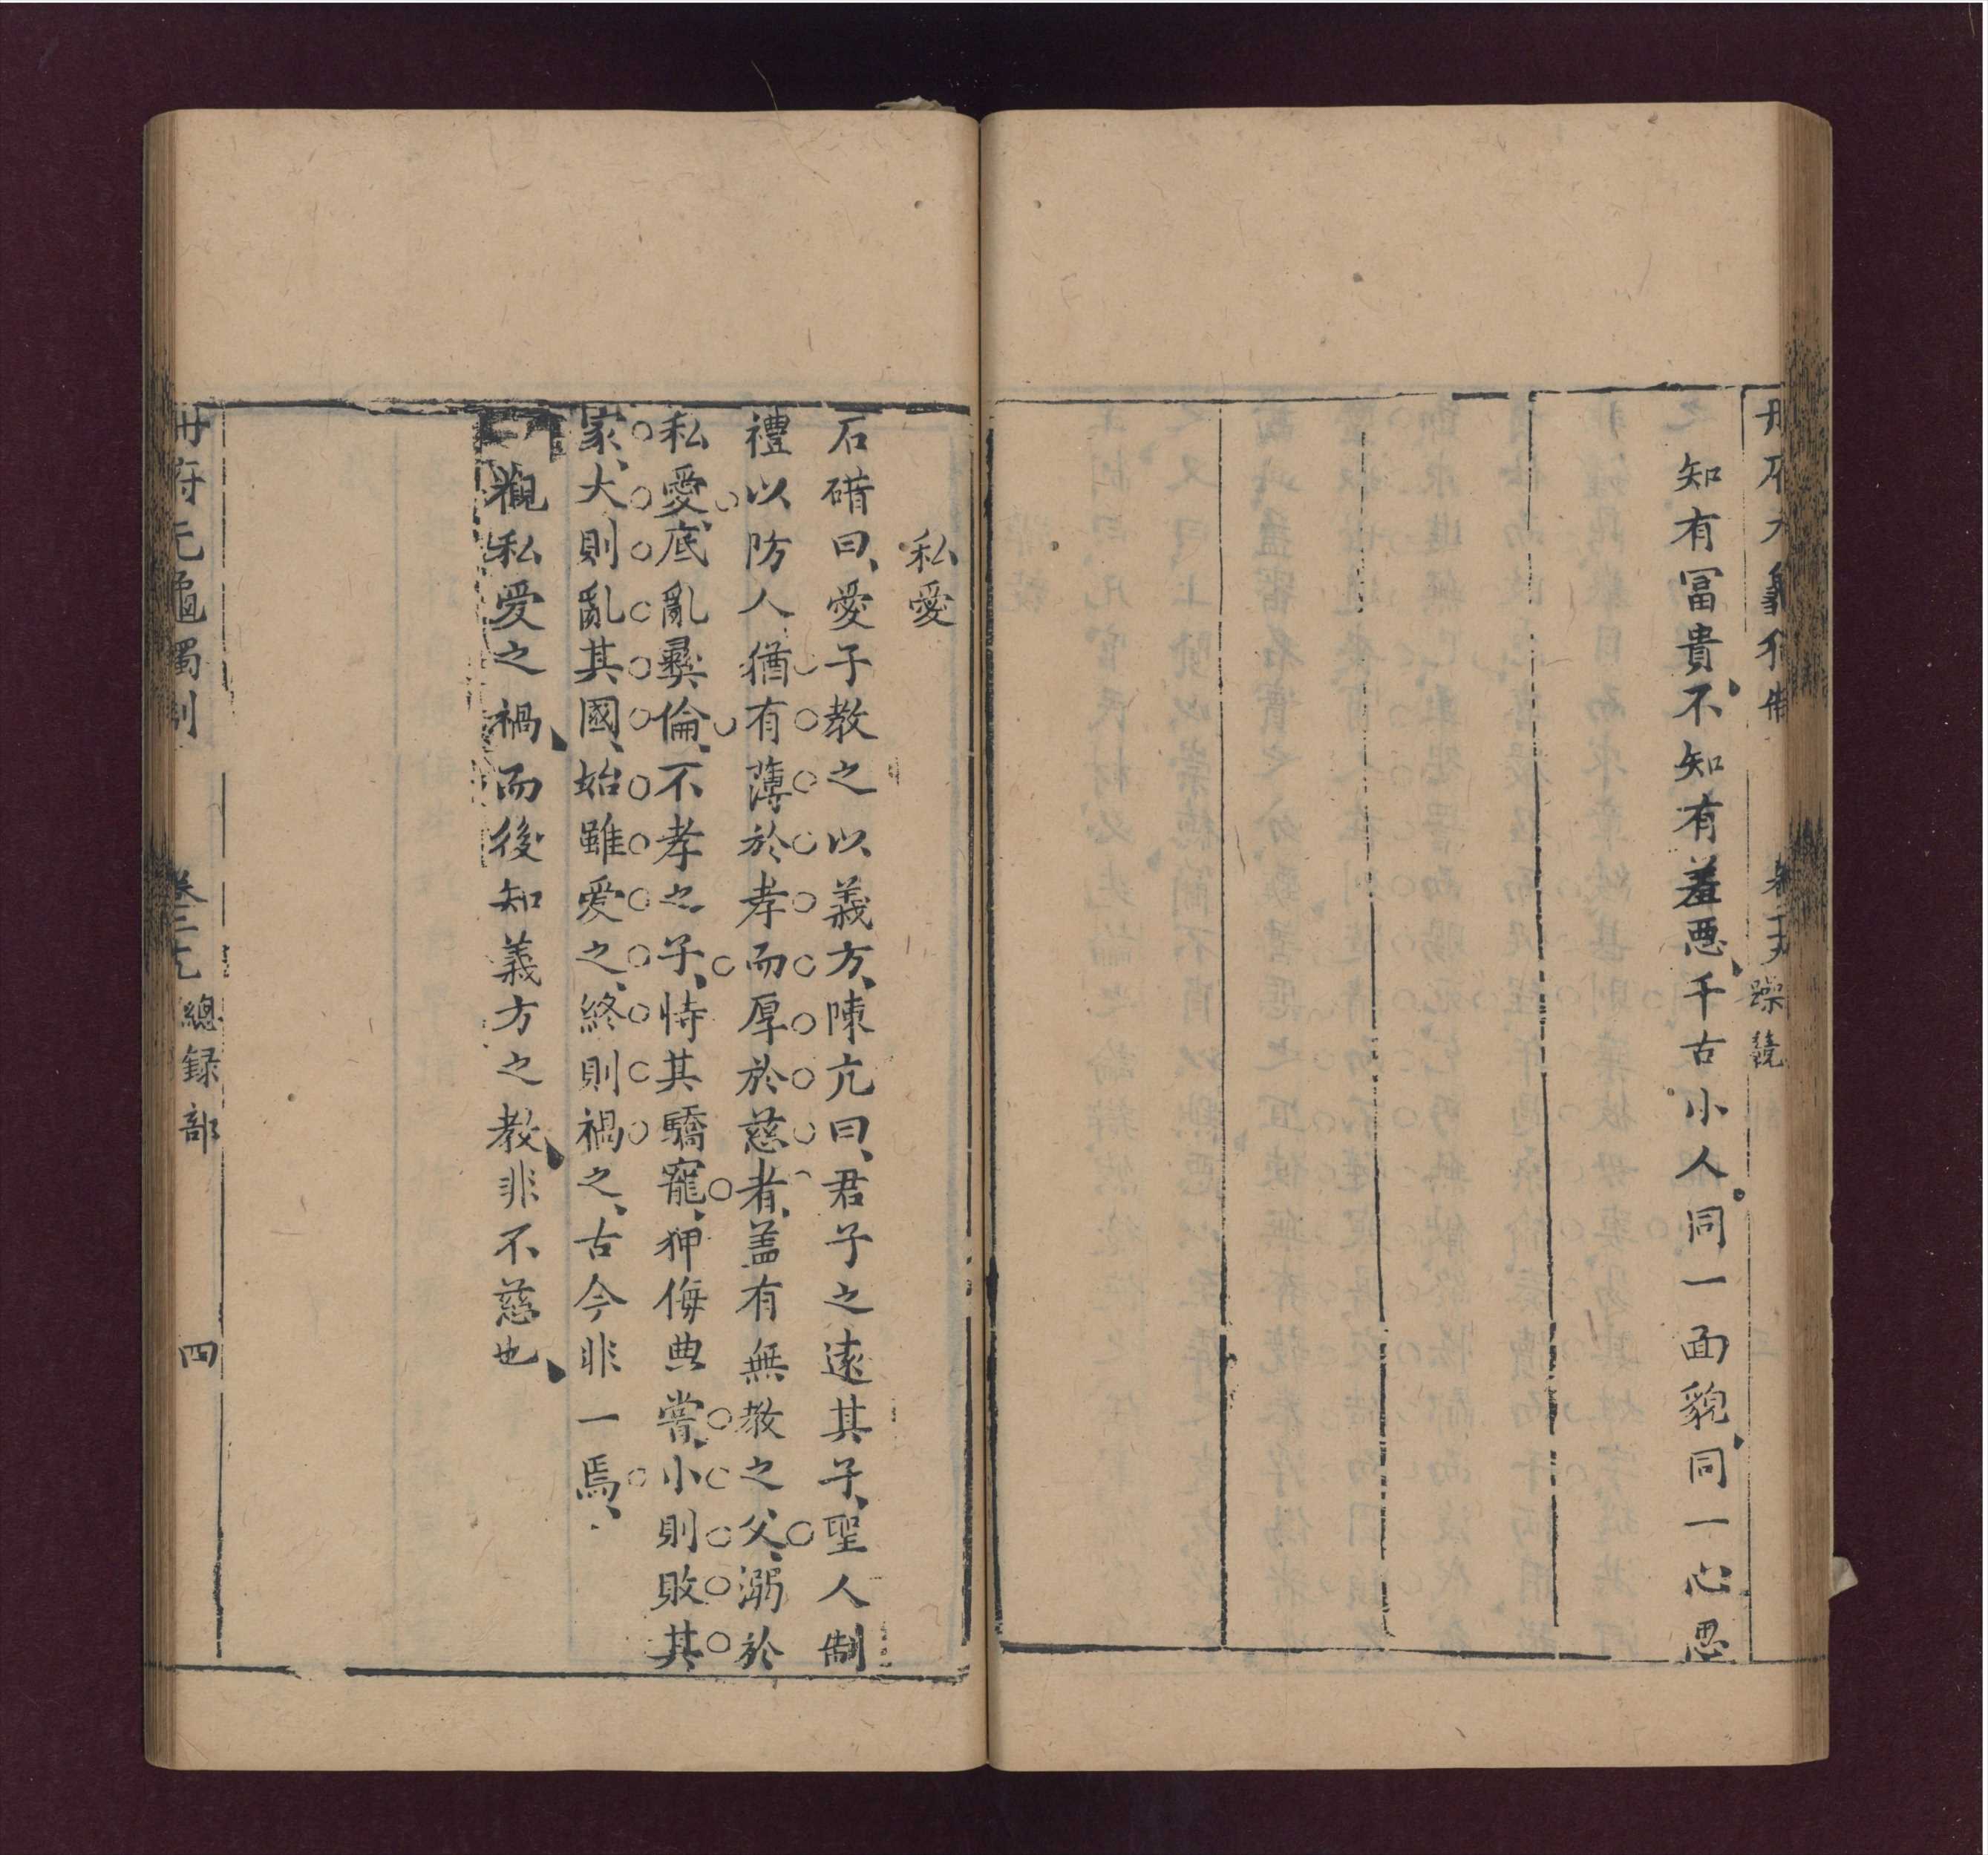 知有冨貴不知有羞惡千古小人同一面貌同一心思
躁競
私愛
石碏曰愛子教之以義方陳亢曰君子之遠其子聖人制
禮以防人猶有薄於孝而厚於慈者蓋有無教之父溺於
私愛底亂彛倫不孝之子恃其驕寵狎侮典常小則敗其
家大則亂其國始雖愛之終則禍之古今非一焉
觀私愛之禍而後知義方之教非不慈也
冊府元龜獨制 總録部 四